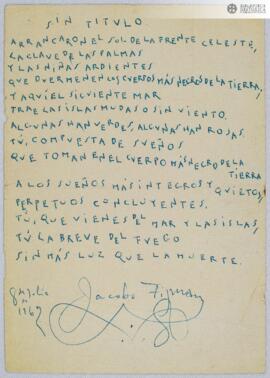 SIN TITULO
ARRANCARON EL SOL DE LA FRENTE CELESTE,
LA CLAVE DE LAS PALMAS
Y LAS NIÑAS ARDIENTES
QUE DUERMEN EN LOS CUERPOS MÁS NEGROS DE LA TIERRA,
Y AQUÍ EL SIGUIENTE MAR
TRAE LAS ISLAS MUDAS O SIN VIENTO.
ALGUNAS HAN VERDES, ALGUNAS HAN ROSAS.
TÚ, COMPUESTA DE SUEÑOS
QUE TOMAN EN EL CUERPO MÁS NEGRO DE LA
TIERRA
A LOS SUEÑOS MÁS INTEGROS Y QUIETOS,
PERPETUOS CONCLUYENTES.
TÚ, QUE VIENES DEL MAR Y LAS ISLAS,
TÚ LA BREVE DEL FUEGO
SIN MÁS LUZ QUE LA MUERTE.
Jacobo Fijman